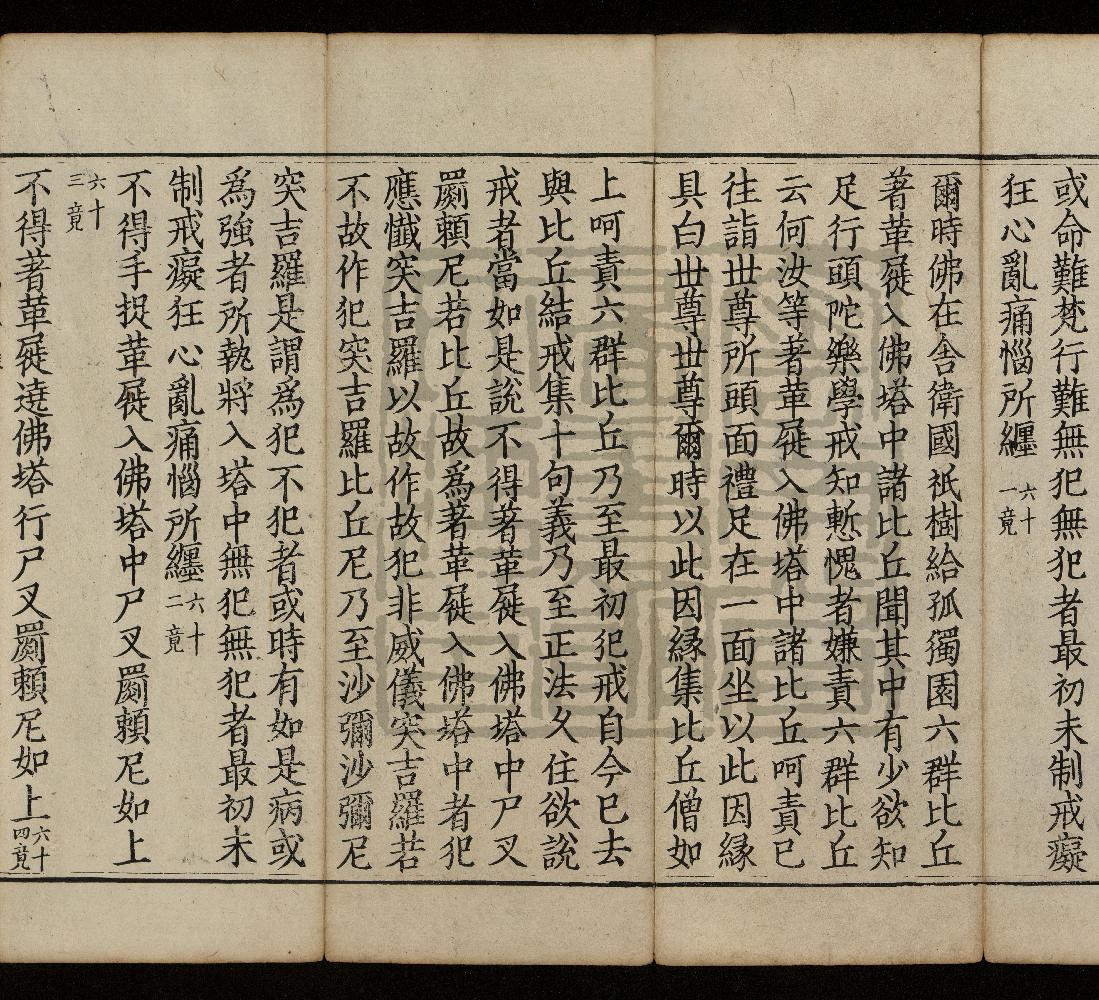 或命難梵行難無犯無犯者最初未制戒癡
狂心亂痛惱所纏六十一竟
爾時佛在舍衛國祇樹給孤獨園六群比丘
著革屣入佛塔中諸比丘聞其中有少欲知
足行頭陀樂學戒知慙愧者嫌責六群比丘
云何汝等著革屣入佛塔中諸比丘呵責已
往詣世尊所頭面禮足在一面坐以此因緣
具白世尊世尊爾時以此因緣集比丘僧如
上呵責六群比丘乃至最初犯戒自今已去
與比丘結戒集十句義乃至正法久住欲說
戒者當如是說不得著革屣入佛塔中尸叉
罽賴尼若比丘故爲著革屣入佛塔中者犯
應懺突吉羅以故作故犯非威儀突吉羅若
不故作犯突吉羅比丘尼乃至沙彌沙彌尼
突吉羅是謂爲犯不犯者或時有如是病或
爲強者所執將入塔中無犯無犯者最初未
制戒癡狂心亂痛惱所纏六十二竟
不得手捉革屣入佛塔中尸叉罽賴尼如上
六十三竟
不得著革屣遶佛塔行尸叉罽賴尼如上六十四竟